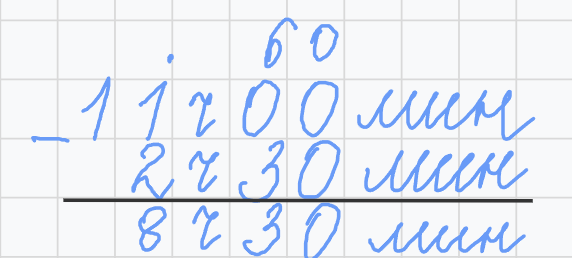 60
11ч 00 мин
– 2ч 30 мин
8ч 30 мин